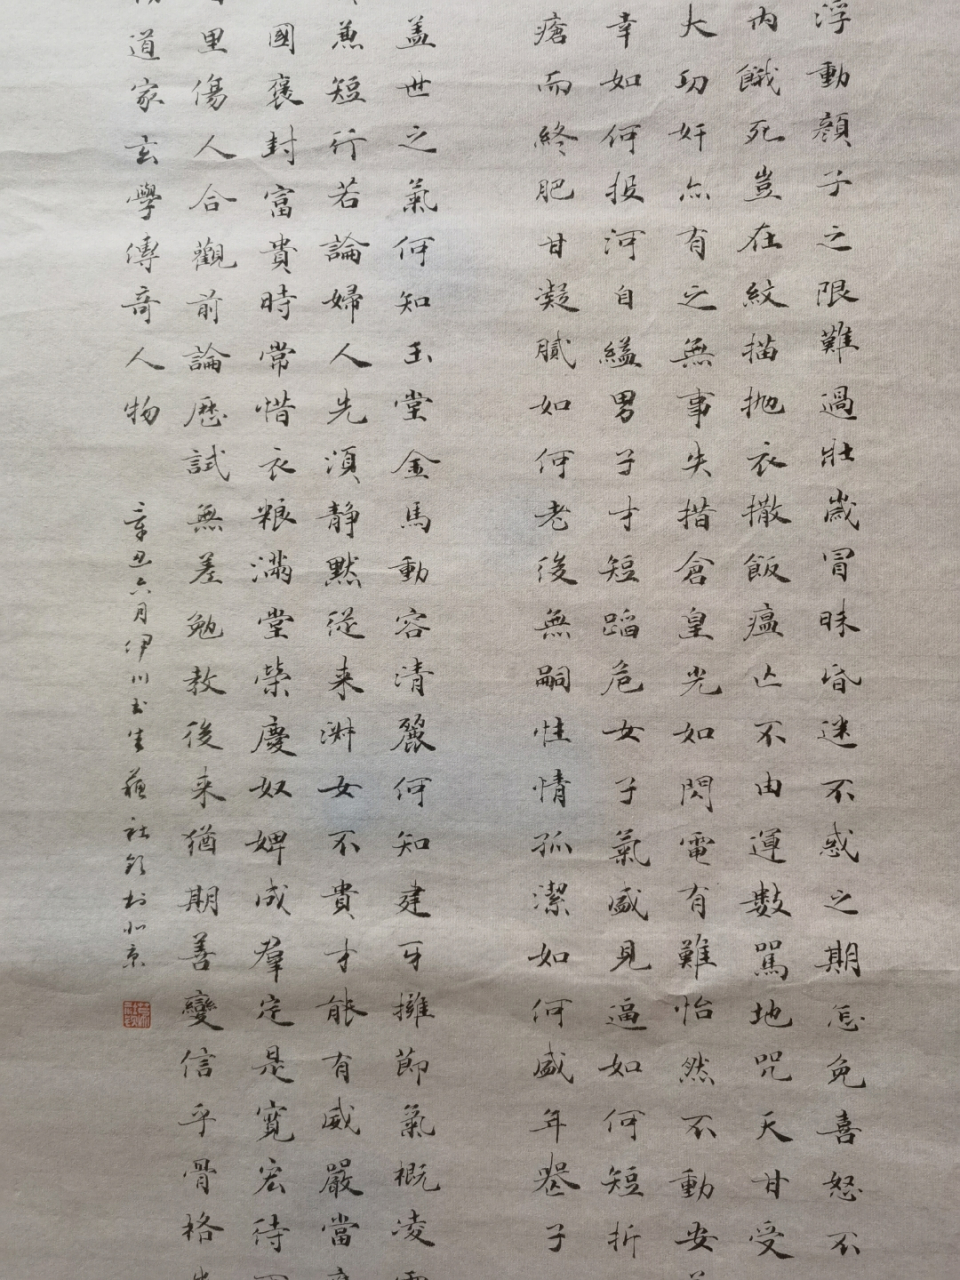 浮動顏子之限難過壯歲冒昧昏迷不惑之期怎免喜怒不
內餓死豈在紋描抛衣撒飯瘟亡不由運數罵地咒天甘受
大功奸亦有之無事失措倉皇光如閃電有難怡然不動安
幸如何投河自縊男子才短蹈危女子氣盛見逼如何短折
瘡而終肥甘凝膩如何老後無嗣性情孤潔如何盛年喪子
蓋世之氣何知玉堂金馬動容清麗何知建牙擁節氣概凌
急短行若論婦人先須静默從来淑女不貴才能有威嚴當
國褒封富貴時常惜衣粮滿堂榮慶奴婢成羣定是寬宏待
里傷人合觀前論歷試無差勉教後来猶期善變信乎骨格
道家玄學傳奇人物
辛丑六月伊川書生蘇社欽於北京